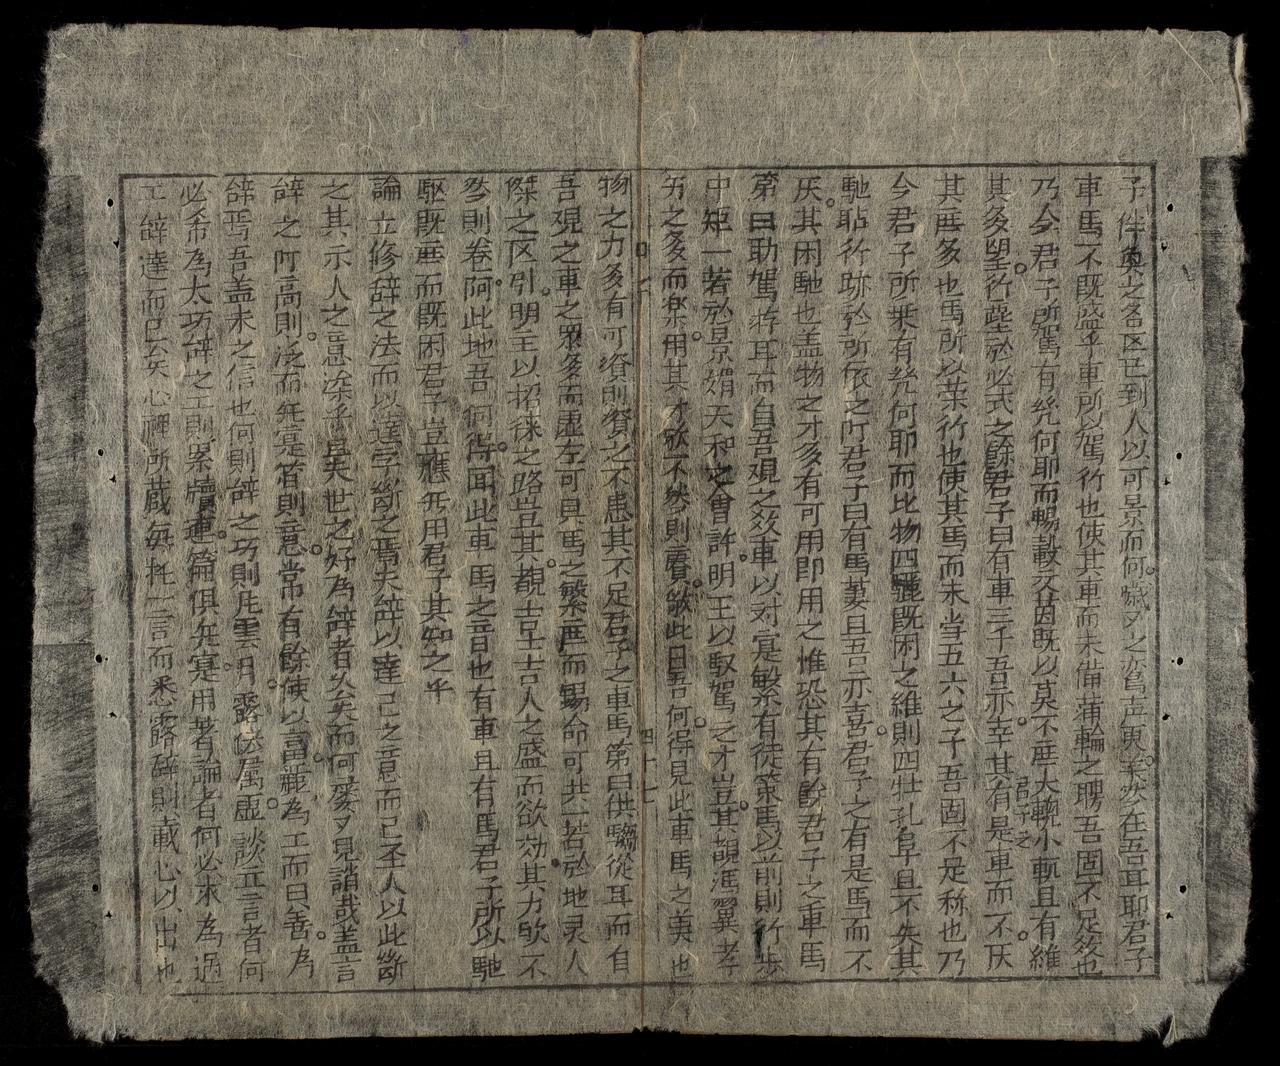 子伴奐之各区已到人以可景而何 又之 在吾耳耶君子
車馬不既盛乎車所以駕行也使其車而未備蒲輪之聘吾固不足爻也
乃今君子所駕有幾何耶而暢轂文茵既以莫不庶大輗小軏且有維
其多望行塵於必式之餘君子曰有車三千吾亦幸其有是車而不厌
其庶多也馬所以荣行也使其馬而未当五六之子吾固不足称也乃
今君子所乗有幾何耶而比物四驪既困之維則四牡孔阜且不失其
馳貼行跡於所依之所君子曰有馬萋且吾亦喜君子之有是馬而不
厌其困馳也盖物之才多有可用即用之惟恐其有餘君子之車馬
第曰助駕 耳而自吾覌之爻車以对寔繁有徒策馬以前則行步
中矩一若於景媚天和之會許明王以馭駕之才豈其覩馮翼孝
另之多而乗用其才欤不然則 欤此日吾何得見此車馬之美也
物之力多有可資則資之不患其不足君子之車馬第曰供騶從耳而自
吾覌之車之眾多而虚左可具馬之繁庶而錫命可共一若於地灵人
傑之区引明王以招徠之路豈其覩吉士吉人之盛而欲効其力欤不
然則卷阿此地吾何得聞此車馬之音也有車且有馬君子所以馳
駆既庶而既困君子豈應無用君子其知之乎
論立修辞之法而以達字断之焉夫辞以達己之意而已圣人以此断
之其示人之意深乎且夫世之好為辞者久矣而何庱又見誚哉盖言
辞之所高則泛而無寔者則意常有餘使以言麗為工而曰善為
辞焉吾盖未之信也何則辞之巧則凡雲月露恍属虚談立言者何
必希為太巧辞之工則累牘連篇俱無寔用著論者何必求為過
工辞達而已矣心裡所蔵每托一言而悉露辞則載心以出也
四十七